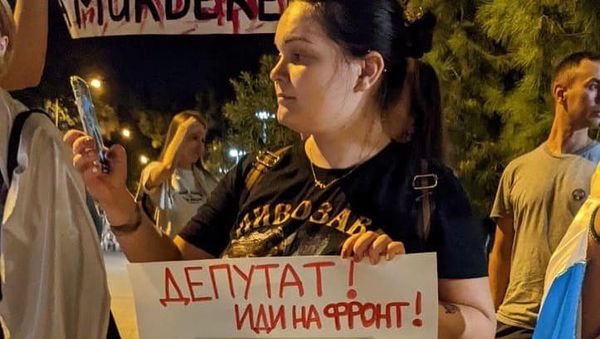 MURDERE
ПИВОЗАВ
ДЕПУТАТ!
ИДИ НА ФРОНТ!